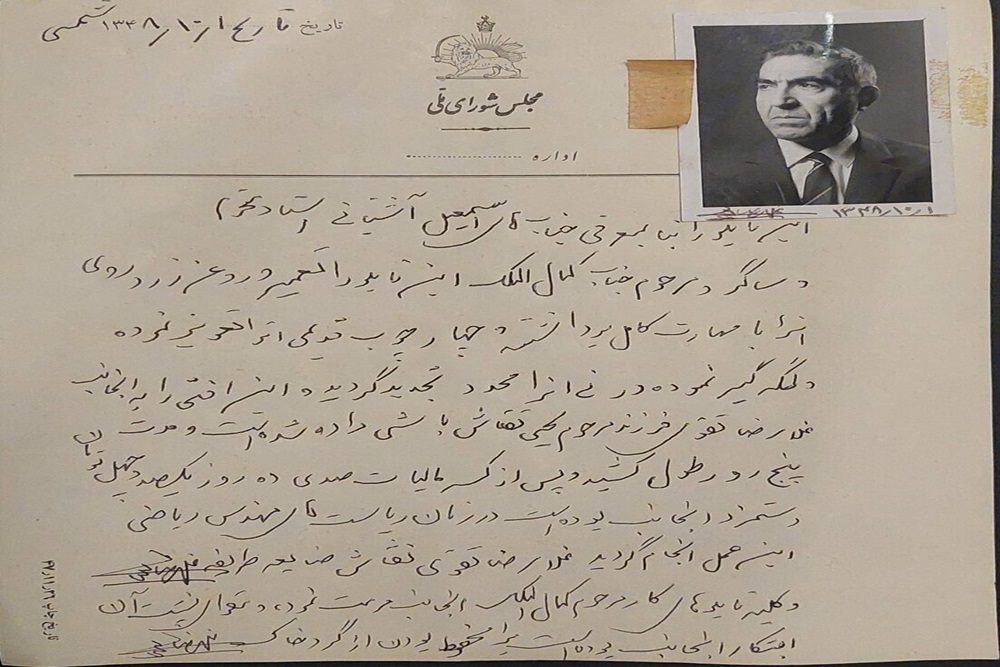 تاریخ تاریخ ۱۳۴۸/۱۰/۱ شمسی
مجلس شورای ملی
اداره
۱۳۴۸/۱۰/۱
این تابلو را بنا بمعرفی جناب آقای اسمعیل آشتیانی استاد محترم
و شاگرد مرحوم جناب کمال الملک این تابلو را تعمیر و روغن زرد روی
آنرا با مهارت کامل برداشته و چهارچوب قدیمی آنرا تعویض نموده
و لکه گیر نموده در نی آنرا مجدد تجدید گردید و این افتخار را به اینجانب
غلامرضا تقوی فرزند مرحوم یحیی نقاش باشی داده شده است و مدت
پنج روز طول کشید و پس از کسر مالیات صدی ده روز یکصد و چهل تومان
دستمزد اینجانب بوده است در زمان ریاست آقای مهندس ریاضی
این عمل انجام گردید غلامرضا تقوی نقاش صنایع ظریفه
و کلیه تابلوهای کار مرحوم کمال الملک اینجانب مرمت نموده و مقوای پشت آن
ابتکار اینجانب بوده است برای محفوظ بودن از گرد و خاک
تاریخ چاپ